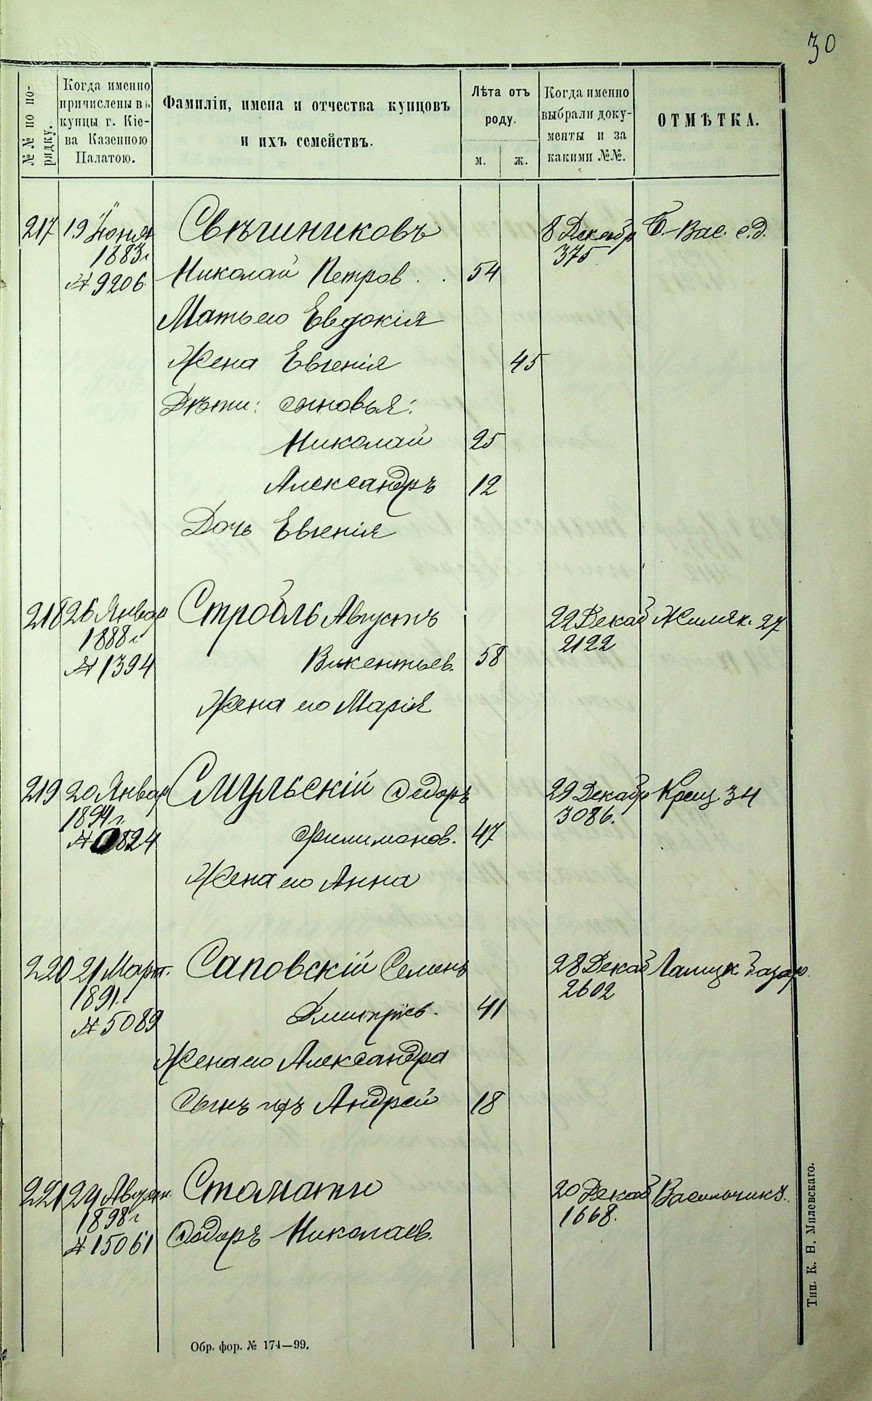 30
№№ по порядку.
Когда именно
причислены въ
купцы г. Кіе-
ва Казенною
Палатою.
Фамиліи, имена и отчества купцовъ
и ихъ семействъ.
Лѣта отъ
роду.
м. ж.
Когда именно
выбрали доку-
менты и за
какими №№.
ОТМѢТКА.
217 19 Іюня Свѣчниковъ 8 Декабр Б-Вас. с.д.
1883 г. 375
№ 9206 Николай Петров. 54
Мать его Евдокія
Жена Евгенія 45
Дѣти: сыновья:
Николай 25
Александръ 12
Дочь Евгенія
218 26 Январ Стробль Августъ 22 Декаб Жилян. 27
1888 г. 2122
№ 1394 Викентьев. 58
Жена его Марія
219 20 Январ Смульскій Федоръ 29 Декабр Крещ 34
1894 г. 3086.
№ 824 Филимонов. 47
Жена его Анна
220 21 Март. Саповскій Семенъ 28 Декаб Галицк базар.
1891 г. 2602
№ 5089 Дмитріев. 41
Жена его Александра
Сынъ ихъ Андрей 18
221 29 Август. Стамати 20 Декаб Васильчик.
1898 г. 1668.
№ 15061 Федоръ Николаев.
Обр. фор. № 174—99.
Тип. К. Н. Милевскаго.